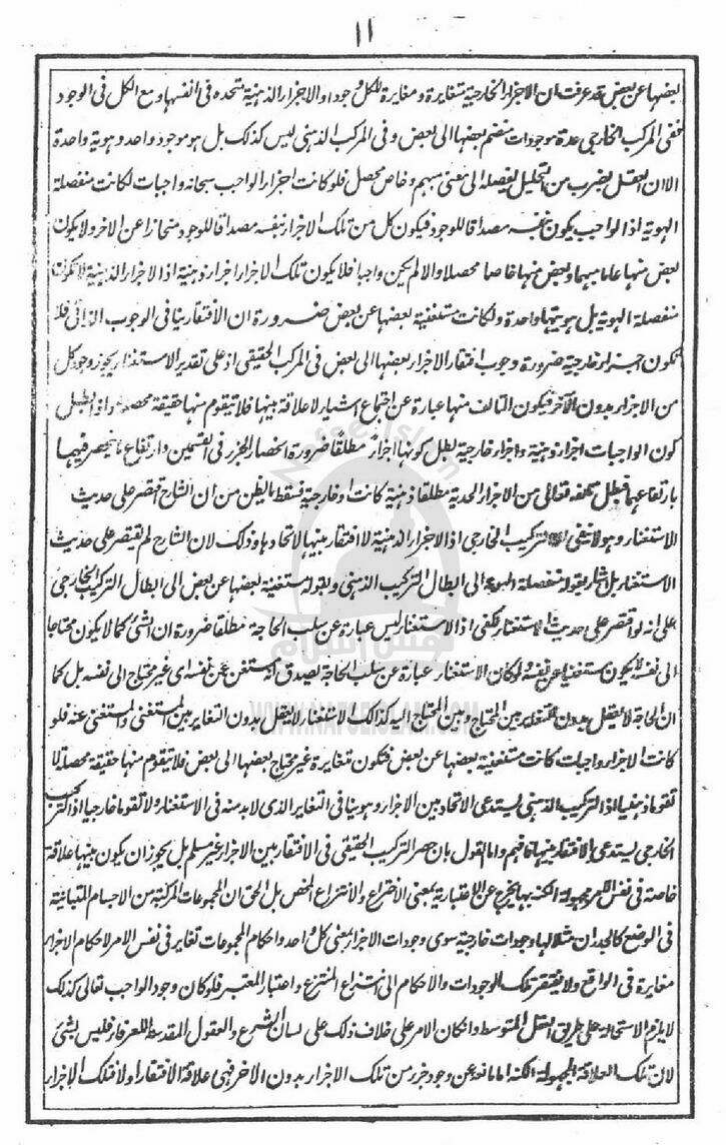 ١١
بعضها عن بعض قد عرفت ان الاجزاء الخارجية متغايرة ومغايرة للكل وجودا والاجزاء الذهنية متحدة فى انفسها ومع الكل فى الوجود
ففى المركب الخارجى عدة موجودات منضم بعضها الى بعض وفى المركب الذهنى ليس كذلك بل هو موجود واحد وهوية واحدة
الا ان العقل بضرب من التحليل يفصله الى معنى مبهم وخاص محصل فلو كانت اجزاء الواجب سبحانه واجبات لكانت منفصلة
الهوية اذ الواجب يكون بنفسه مصداقا للوجود فيكون كل من تلك الاجزاء بنفسه مصداقا للوجود منحازا عن الاخر ولا يكون
بعض منها عاما مبهما وبعض منها خاصا محصلا والا لم يكن واجبا فلا يكون تلك الاجزاء اجزاء ذهنية اذ الاجزاء الذهنية لا تكون
منفصلة الهوية بل هويتها واحدة ولكانت مستغنية بعضها عن بعض ضرورة ان الافتقار ينافى الوجوب الذاتى فلا
تكون اجزاء خارجية ضرورة وجوب افتقار الاجزاء بعضها الى بعض فى المركب الحقيقى اذ على تقدير الاستغناء يجوز وجود كل
من الاجزاء بدون الآخر فيكون التالف منها عبارة عن اجتماع اشياء لا علاقة بينها فلا يتقوم منها حقيقة محصلة واذ بطل
كون الواجبات اجزاء ذهنية واجزاء خارجية بطل كونها اجزاءً مطلقًا ضرورة انحصار الجزء فى القسمين وارتفاع ما ينحصر فيهما
بارتفاعهما فبطل تالفه تعالى من الاجزاء الحدية مطلقا ذهنية كانت او خارجية فسقط ما يظن من ان الشارح اقتصر على حديث
الاستغناء وهو لا ينفى التركيب الخارجى اذ الاجزاء الذهنية لا افتقار بينها لاتحادها وذلك لان الشارح لم يقتصر على حديث
الاستغناء بل اشار بقوله منفصلة الهوية الى ابطال التركيب الذهنى وبقوله مستغنية بعضها عن بعض الى ابطال التركيب الخارجى
على انه لو اقتصر على حديث الاستغناء لكفى اذ الاستغناء ليس عبارة عن سلب الحاجة مطلقا ضرورة ان الشئ كما لا يكون محتاجا
الى نفسه لا يكون مستغنيا عن نفسه ولو كان الاستغناء عبارة عن سلب الحاجة لصدق انه مستغن عن نفسه اى غير محتاج الى نفسه بل كما
ان الحاجة لا يعقل بدون التغاير بين المحتاج وبين المحتاج اليه كذلك الاستغناء لا يعقل بدون التغاير بين المستغنى والمستغنى عنه فلو
كانت الاجزاء واجبات كانت مستغنية بعضها عن بعض فتكون متغايرة غير محتاج بعضها الى بعض فلا يتقوم منها حقيقة محصلة لا
تقوما ذهنيا اذ التركيب الذهنى يستدعى الاتحاد بين الاجزاء وهو ينافى التغاير الذى لا بد منه فى الاستغناء ولا تقوما خارجيا اذ التركيب
الخارجى يستدعى الافتقار بينها فافهم واما القول بان حصر التركيب الحقيقى فى الافتقار بين الاجزاء غير مسلم بل يجوز ان يكون بينها علاقة
خاصة فى نفس الامر مجهولة الكنه بها يخرج عن الاعتبارية بمعنى الاختراع والانتزاع المحض بل الحق ان المجموعات المركبة من الاجسام المتباينة
فى الوضع كالجدران مثلا لها وجودات خارجية سوى وجودات الاجزاء بمعنى كل واحد واحكام المجموعات تغاير فى نفس الامر لاحكام الاجزاء
مغايرة فى الواقع ولا يفتقر تلك الوجودات والاحكام الى انتزاع المنتزع واعتبار المعتبر فلو كان وجود الواجب تعالى كذلك
لا يلزم الاستحالة على طريق العقل المتوسط وان كان الامر على خلاف ذلك على لسان الشرع والعقول المقدسة للعرفاء فليس بشئ
لان تلك العلاقة المجهولة الكنه اما مانعة عن وجود جزء من تلك الاجزاء بدون الاخر فهى علاقة الافتقار اولا فتلك الاجزاء
Nafse Islam
نفس اسلام
WWW.NAFSEISLAM.COM